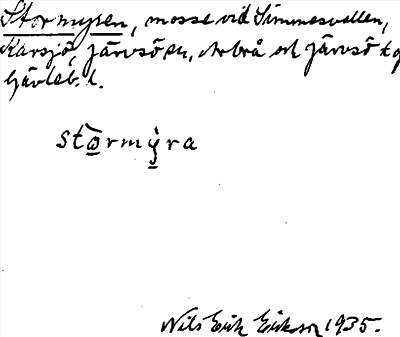 Stormyren, mosse vid Simmesvallen,
Karsjö, Järvsö sn, Arbrå och Järvsö tg
Gävleb. l.
stormyra
Nils Erik Eriksson 1935.